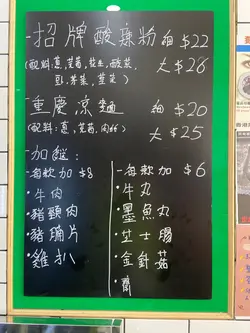 -招牌酸辣粉 細$22
(配料:蔥,芫茜,花生,酸菜, 大$28
豆,芽菜,韮菜)
-重慶涼麵 細$20
(配料:蔥,芫茜,肉碎) 大$25
-加餸:
-每款加$8
•牛肉
•豬頸肉
•豬腩片
•雞扒
-每款加$6
•牛丸
•墨魚丸
•芝士腸
•金針菇